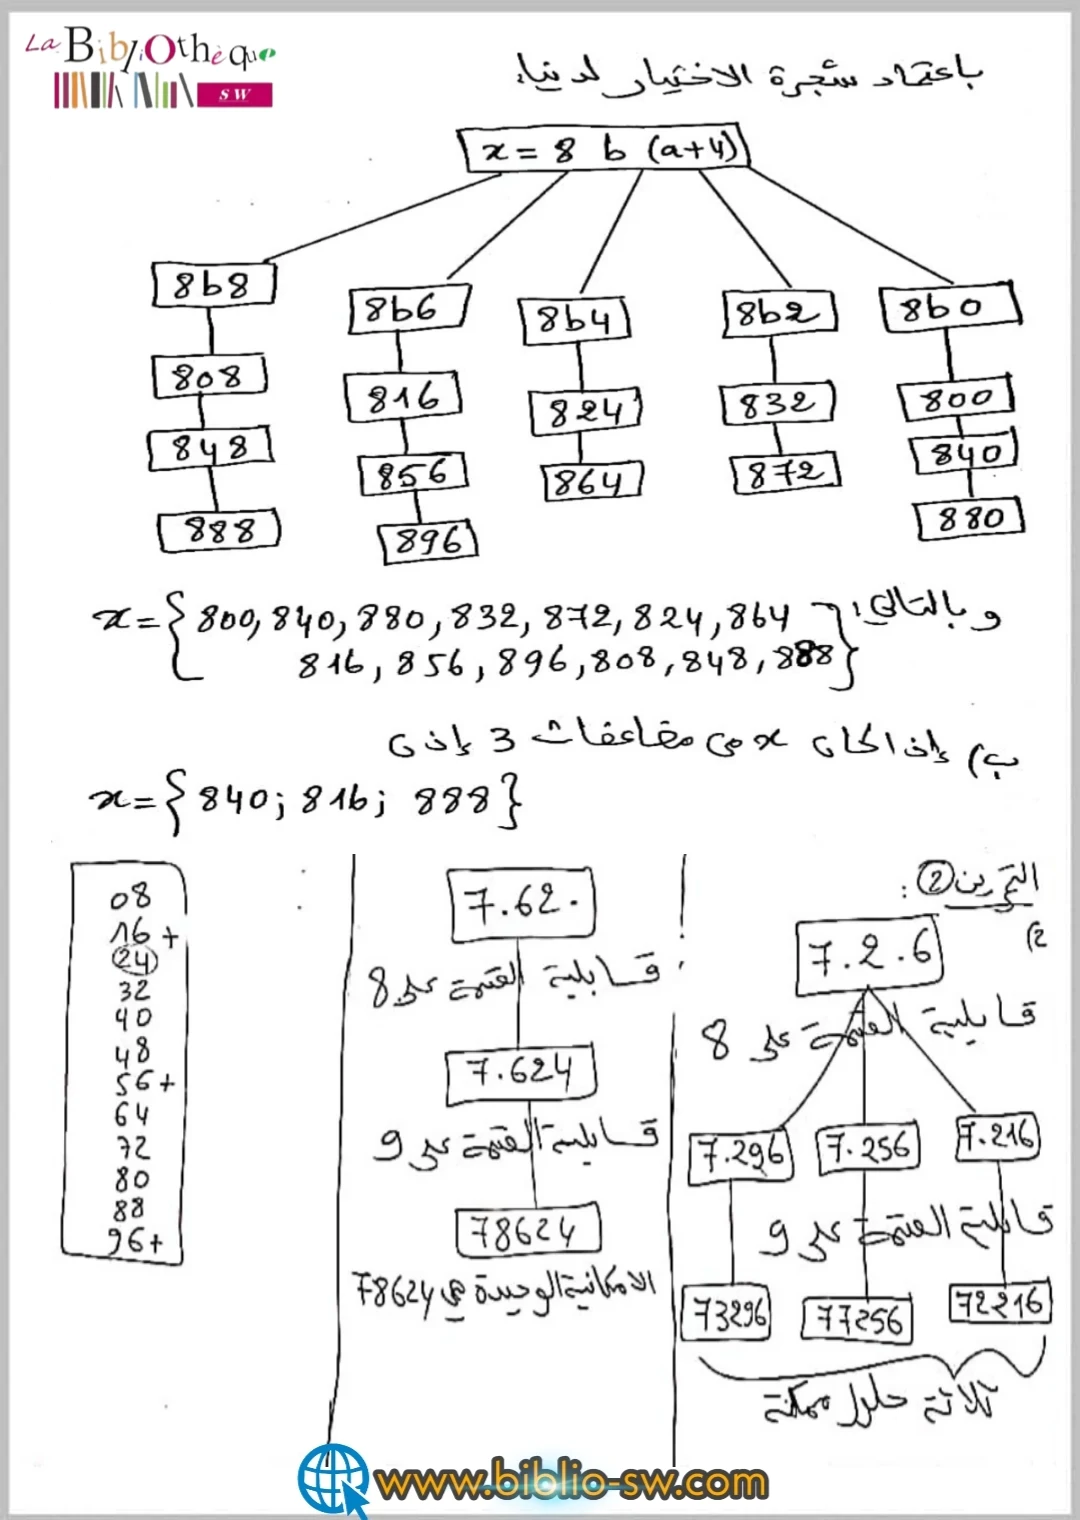 La BibliOthèque
SW
باعتماد شجرة الاختيار لدينا:
x = 8 b (a+4)
8b8 8b6 8b4 8b2 8b0
808 816 824 832 800
848 856 864 872 840
888 896 880
وبالتالي:
x={800, 840, 880, 832, 872, 824, 864
816, 856, 896, 808, 848, 888}
ب) إذا كان x من مضاعفات 3 إذن
x={840; 816; 888}
التمرين 2:
2)
7.2.6
قابلية القسمة على 8
7.296 7.256 7.216
قابلية القسمة على 9
73296 77256 72216
ثلاثة حلول ممكنة
7.62.
قابلية القسمة على 8
7.624
قابلية القسمة على 9
78624
الامكانية الوحيدة هي 78624
08
16+
24
32
40
48
56+
64
72
80
88
96+
www.biblio-sw.com